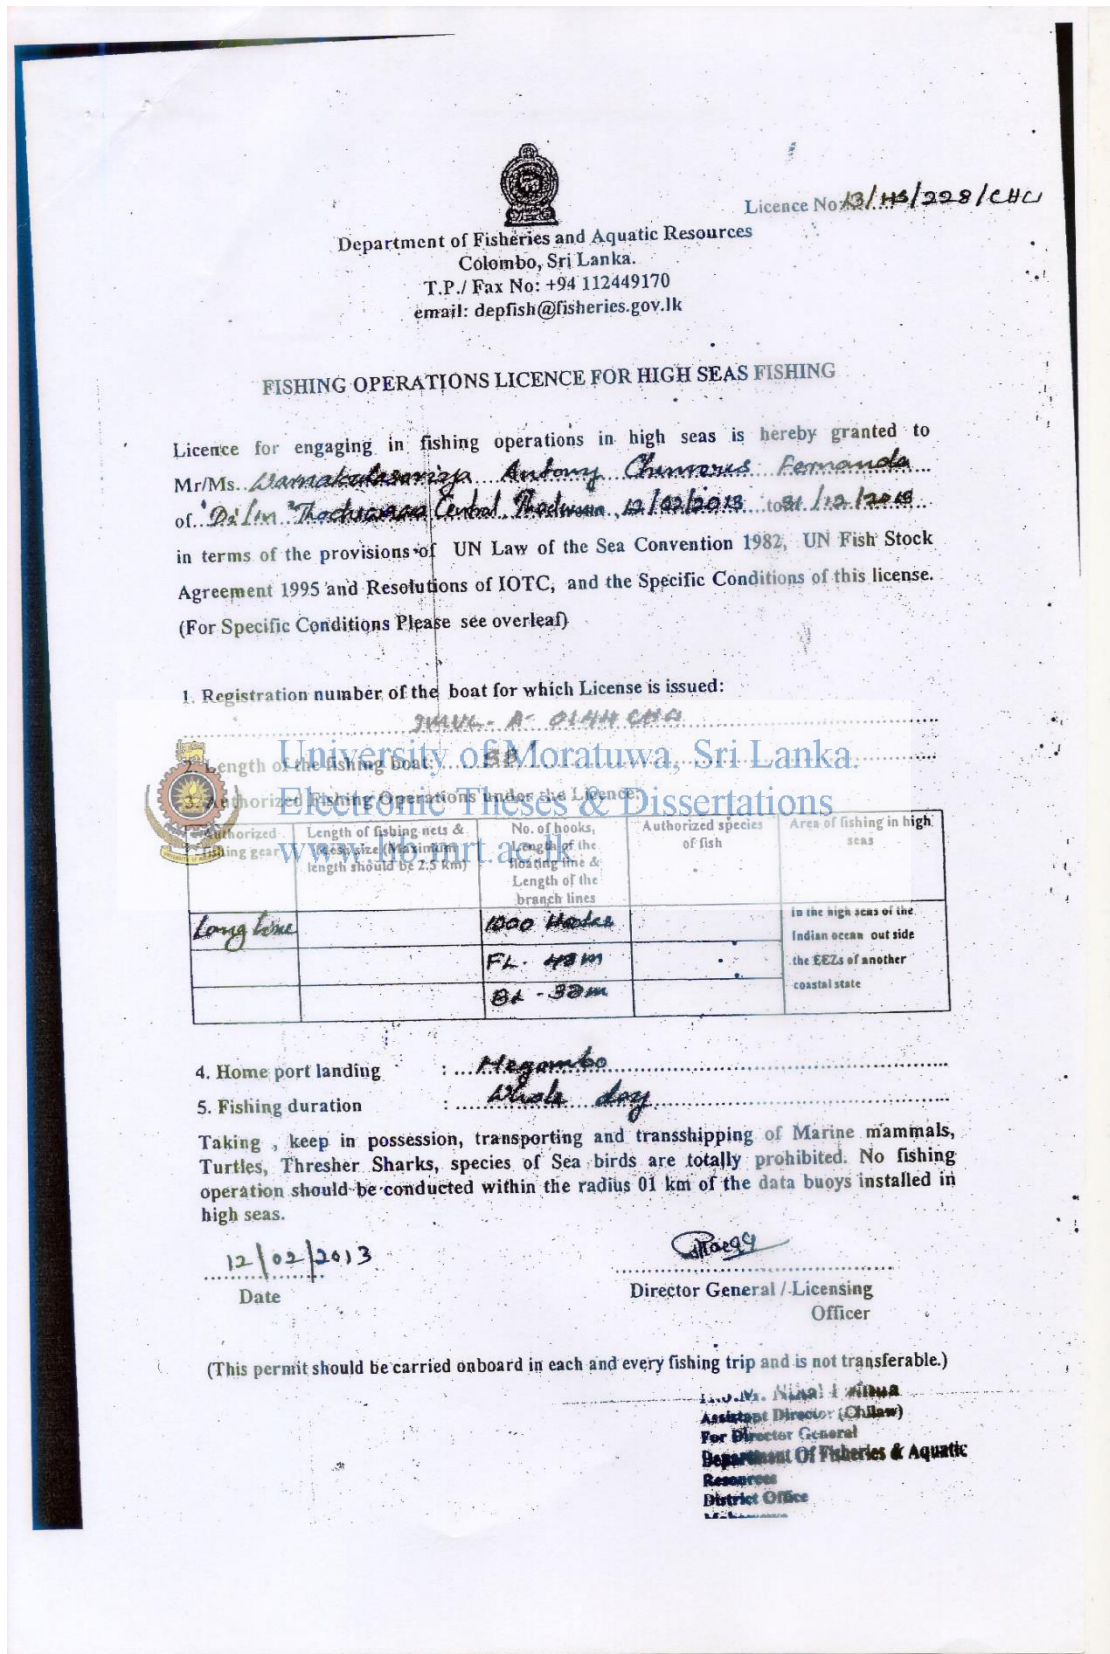 Licence No: 13/HS/228/CHW
Department of Fisheries and Aquatic Resources
Colombo, Sri Lanka.
T.P./ Fax No: +94 112449170
email: depfish@fisheries.gov.lk
FISHING OPERATIONS LICENCE FOR HIGH SEAS FISHING
Licence for engaging in fishing operations in high seas is hereby granted to
Mr/Ms. Antony Fernando
of Central 12/02/2013 to 31/12/2013
in terms of the provisions of UN Law of the Sea Convention 1982, UN Fish Stock
Agreement 1995 and Resolutions of IOTC, and the Specific Conditions of this license.
(For Specific Conditions Please see overleaf)
1. Registration number of the boat for which License is issued:
IMUL - A - 0144 CHW
University of Moratuwa, Sri Lanka.
Length of the fishing boat:
Electronic Theses & Dissertations
Authorized Fishing Operations under the Licence:
www.lib.mrt.ac.lk
Authorized fishing gear
Length of fishing nets & Mesh size (Maximum length should be 2.5 km)
No. of hooks, Length of the floating line & Length of the branch lines
Authorized species of fish
Area of fishing in high seas
Long line
1000 Hooks
FL -
BL -
in the high seas of the
Indian ocean out side
the EEZs of another
coastal state
4. Home port landing : Negombo
5. Fishing duration : Whole day
Taking , keep in possession, transporting and transshipping of Marine mammals,
Turtles, Thresher Sharks, species of Sea birds are totally prohibited. No fishing
operation should be conducted within the radius 01 km of the data buoys installed in
high seas.
12/02/2013
Date
Director General / Licensing
Officer
(This permit should be carried onboard in each and every fishing trip and is not transferable.)
Assistant Director (Chilaw)
For Director General
Department Of Fisheries & Aquatic
Resources
District Office